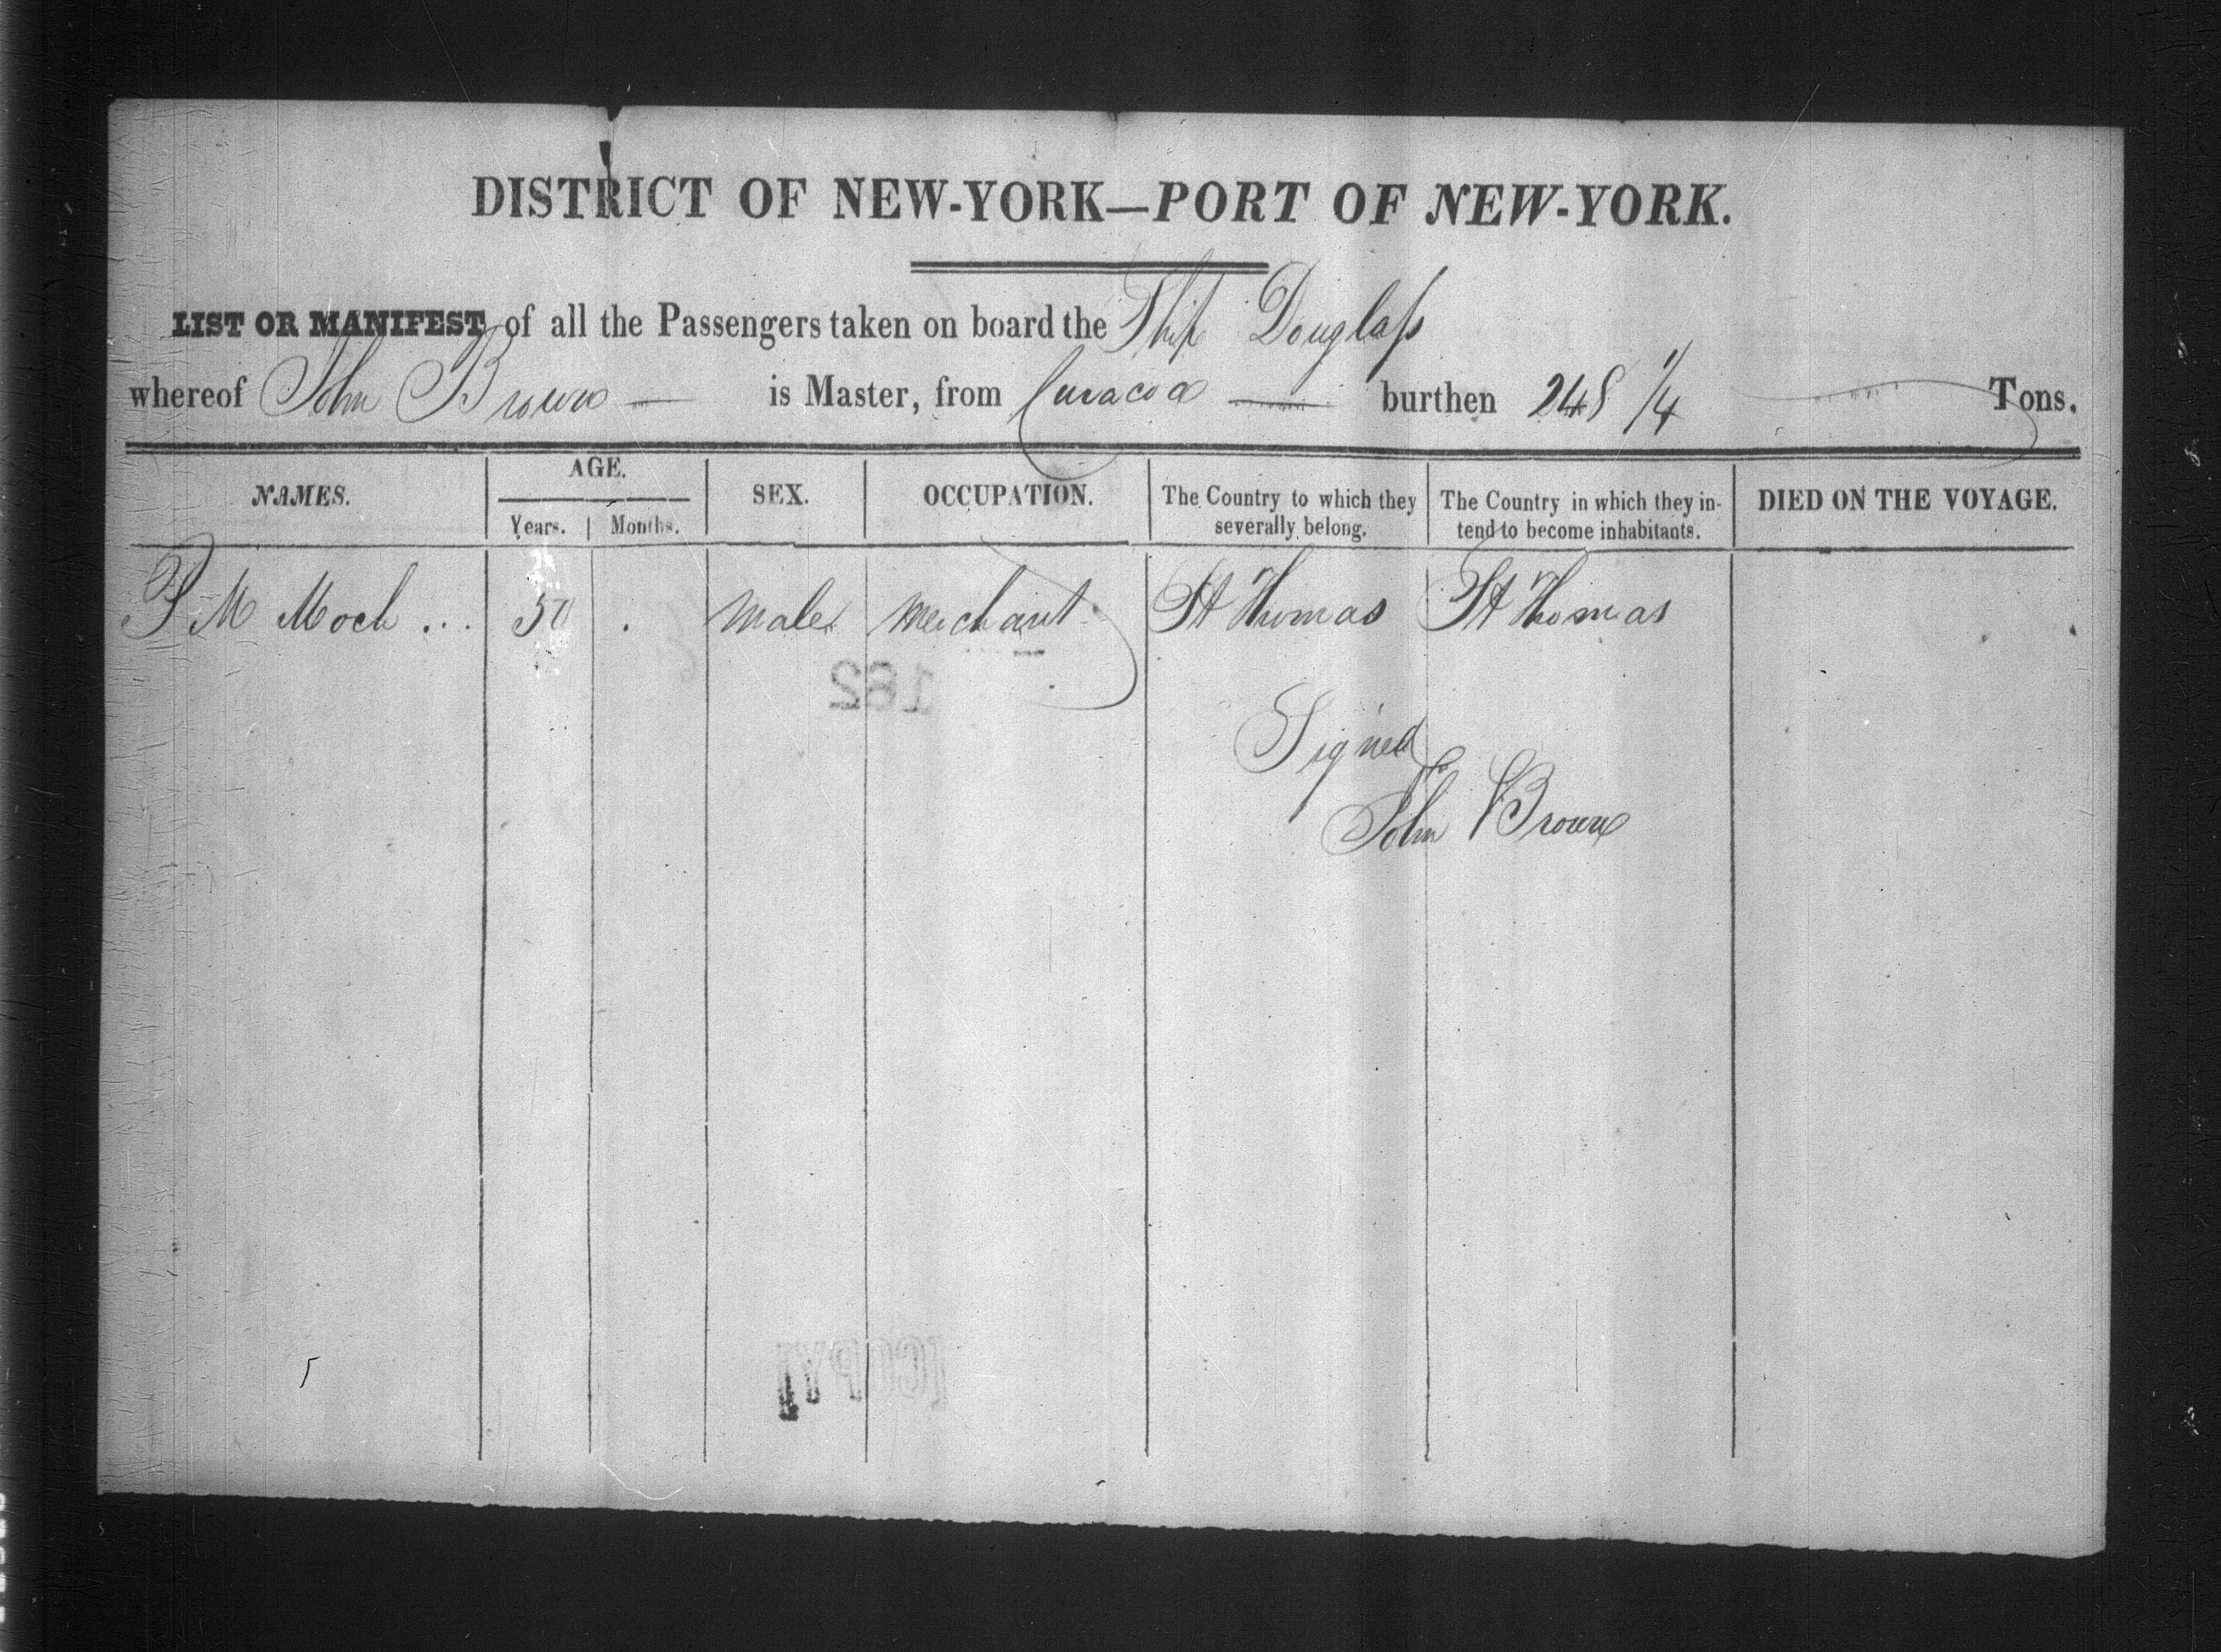 DISTRICT OF NEW-YORK—PORT OF NEW-YORK.
LIST OR MANIFEST of all the Passengers taken on board the Ship Douglass
whereof John Brown — is Master, from Curacoa — burthen 248 1/4 Tons.
NAMES. AGE. SEX. OCCUPATION. The Country to which they severally belong. The Country in which they intend to become inhabitants. DIED ON THE VOYAGE.
Years. Months.
S M Moch ... 50 . Male Merchant St Thomas St Thomas
182
Signed
John Brown
[COPY]